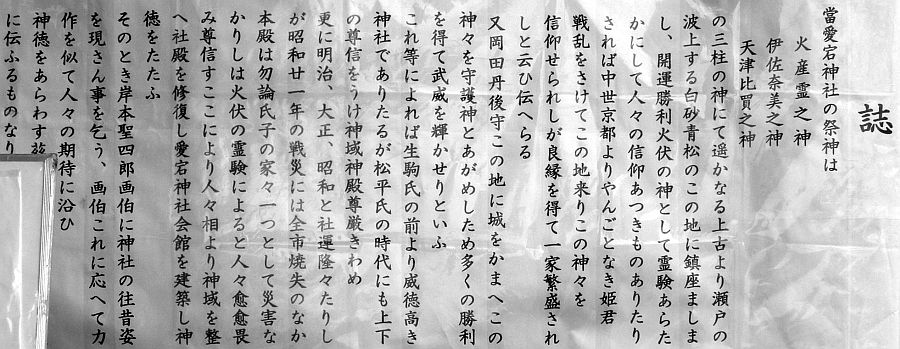 誌
當愛宕神社の祭神は
火産霊之神
伊佐奈美之神
天津比賣之神
の三柱の神にて遥かなる上古より瀬戸の
波上する白砂青松のこの地に鎮座ましま
し、開運勝利火伏の神として霊験あらた
かにして人々の信仰あつきものありたり
されば中世京都よりやんごとなき姫君
戦乱をさけてこの地来りこの神々を
信仰せられしが良縁を得て一家繁盛され
しと云ひ伝へらる
又岡田丹後守この地に城をかまへこの
神々を守護神とあがめしため多くの勝利
を得て武威を輝かせりといふ
これ等によれば生駒氏の前より威徳高き
神社でありたるが松平氏の時代にも上下
の尊信をうけ神域神殿尊厳きわめ
更に明治、大正、昭和と社運隆々たりし
が昭和廿一年の戦災には全市焼失のなか
本殿は勿論氏子の家々一つとして災害な
かりしは火伏の霊験によると人々愈愈畏
み尊信すここにより人々相より神域を整
へ社殿を修復し愛宕神社会館を建築し神
徳をたたふ
そのとき岸本聖四郎画伯に神社の往昔姿
を現さん事を乞う、画伯これに応へて力
作を似て人々の期待に沿ひ
神徳をあらわす
に伝ふるものなり